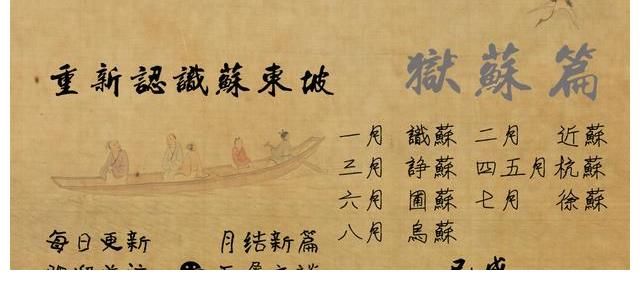 重新認識蘇東坡 獄蘇篇
一月 識蘇 二月 近蘇
三月 諍蘇 四五月 杭蘇
六月 圃蘇 七月 徐蘇
八月 烏蘇
每日更新 月结新篇